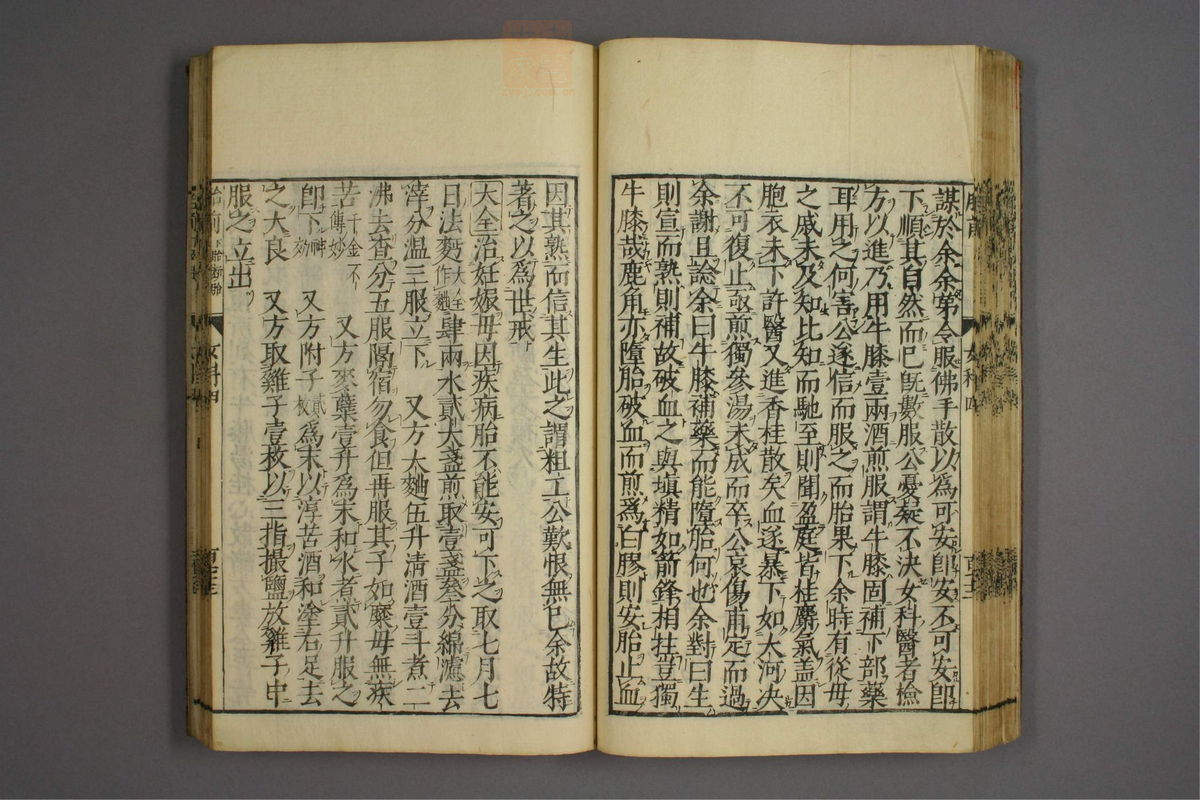 謀於余余第令服佛手散以為可安卽安不可安卽
下順其自然而已旣數服公憂疑不決女科醫者檢
方以進乃用牛膝壹兩酒煎服謂牛膝固補下部藥
耳用之何害公遂信而服之而胎果下余時有從母
之戚未及知比知而馳至則聞盈庭皆桂麝氣盖因
胞衣未下許醫又進香桂散矣血遂暴下如大河决
不可復止亟煎獨參湯未成而卒公哀傷甫定而過
余謝且諗余曰牛膝補藥而能墮胎何也余對曰生
則宣而熟則補故破血之與塡精如箭鋒相拄豈獨
牛膝哉鹿角亦墮胎破血而煎爲白膠則安胎止血
因其熟而信其生此之謂粗工公歎恨無已余故特
著之以爲世戒
大全治妊娠母因疾病胎不能安可下之取七月七
日法麪大全作麯肆兩水貳大盞煎取壹盞叁分綿濾去
滓分温三服立下 又方大麯伍升淸酒壹斗煮二
沸去查分五服隔宿勿食但再服其子如糜母無疾
苦千金不傳妙 又方麥蘖壹升為末和水煮貳升服之
卽下神効 又方附子貳枚爲末以淳苦酒和塗右足去
之大良 又方取雞子壹枚以三指撮鹽放雞子中
服之立出
胎前
女科四